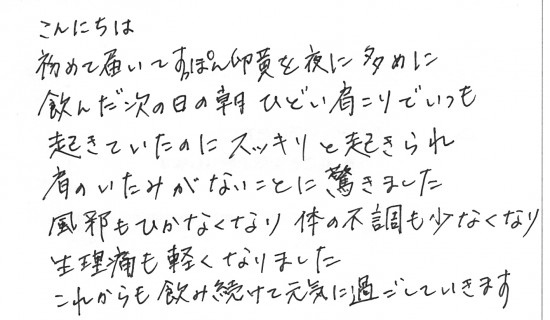 こんにちは
初めて届いてすっぽん卵黄を夜に多めに
飲んだ次の日の朝 ひどい肩こりでいつも
起きていたのにスッキリと起きられ
肩のいたみがないことに驚きました
風邪もひかなくなり 体の不調も少なくなり
生理痛も軽くなりました
これからも飲み続けて元気に過ごしていきます